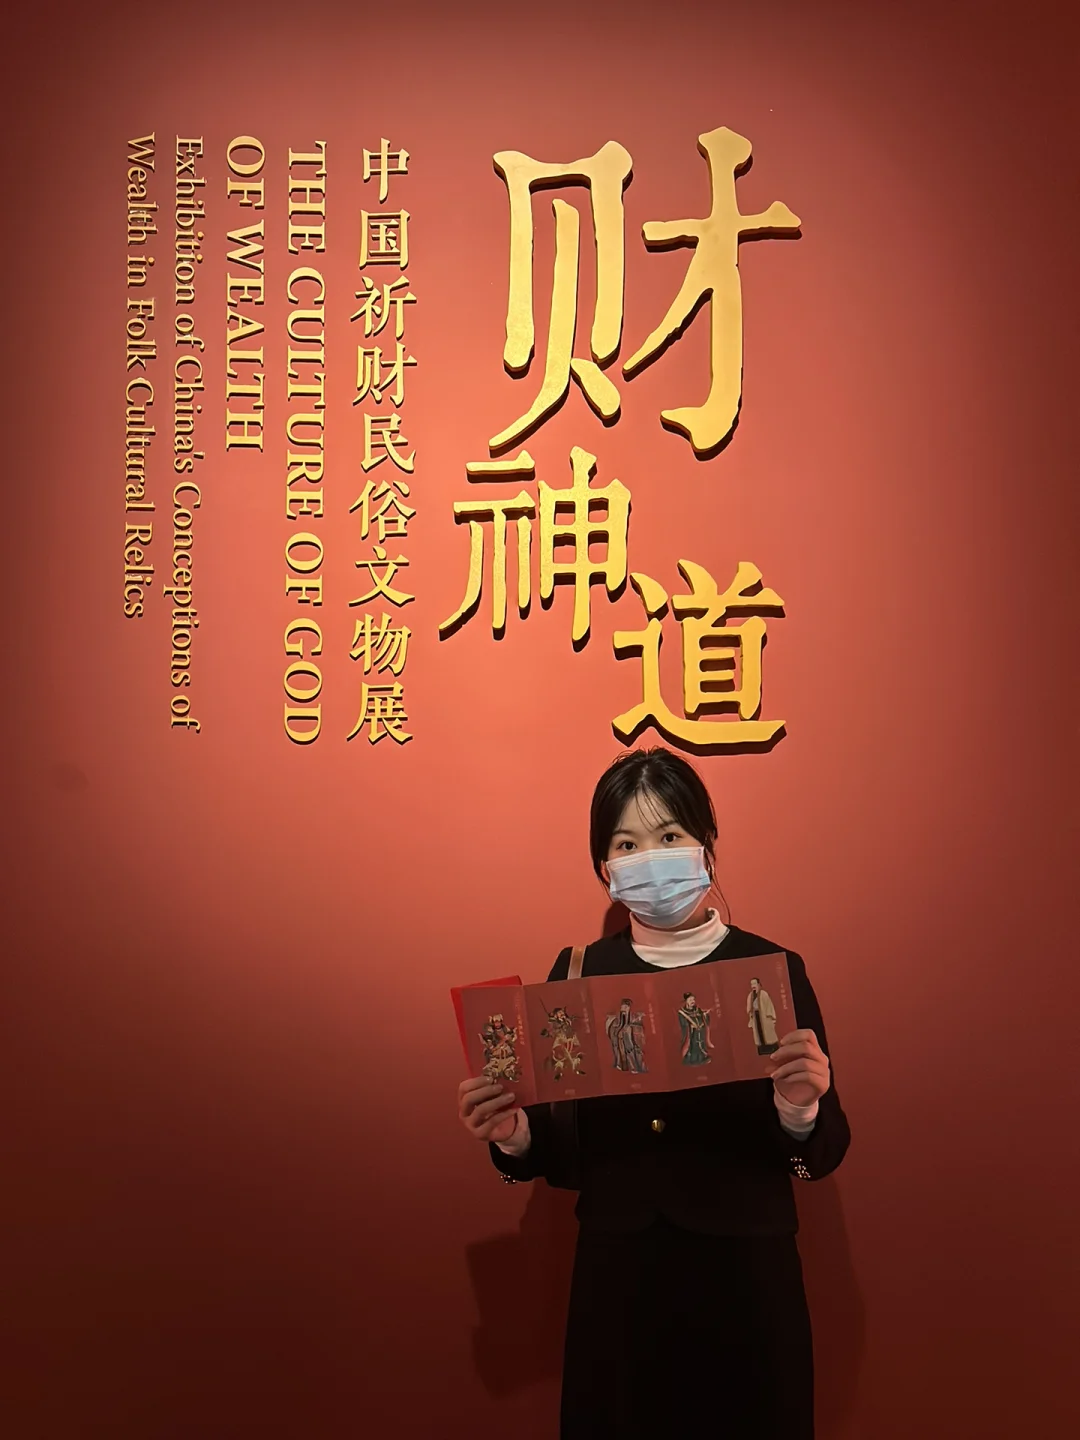 财神道
中国祈财民俗文物展
THE CULTURE OF GOD
OF WEALTH
Exhibition of China's Conceptions of
Wealth in Folk Cultural Relics